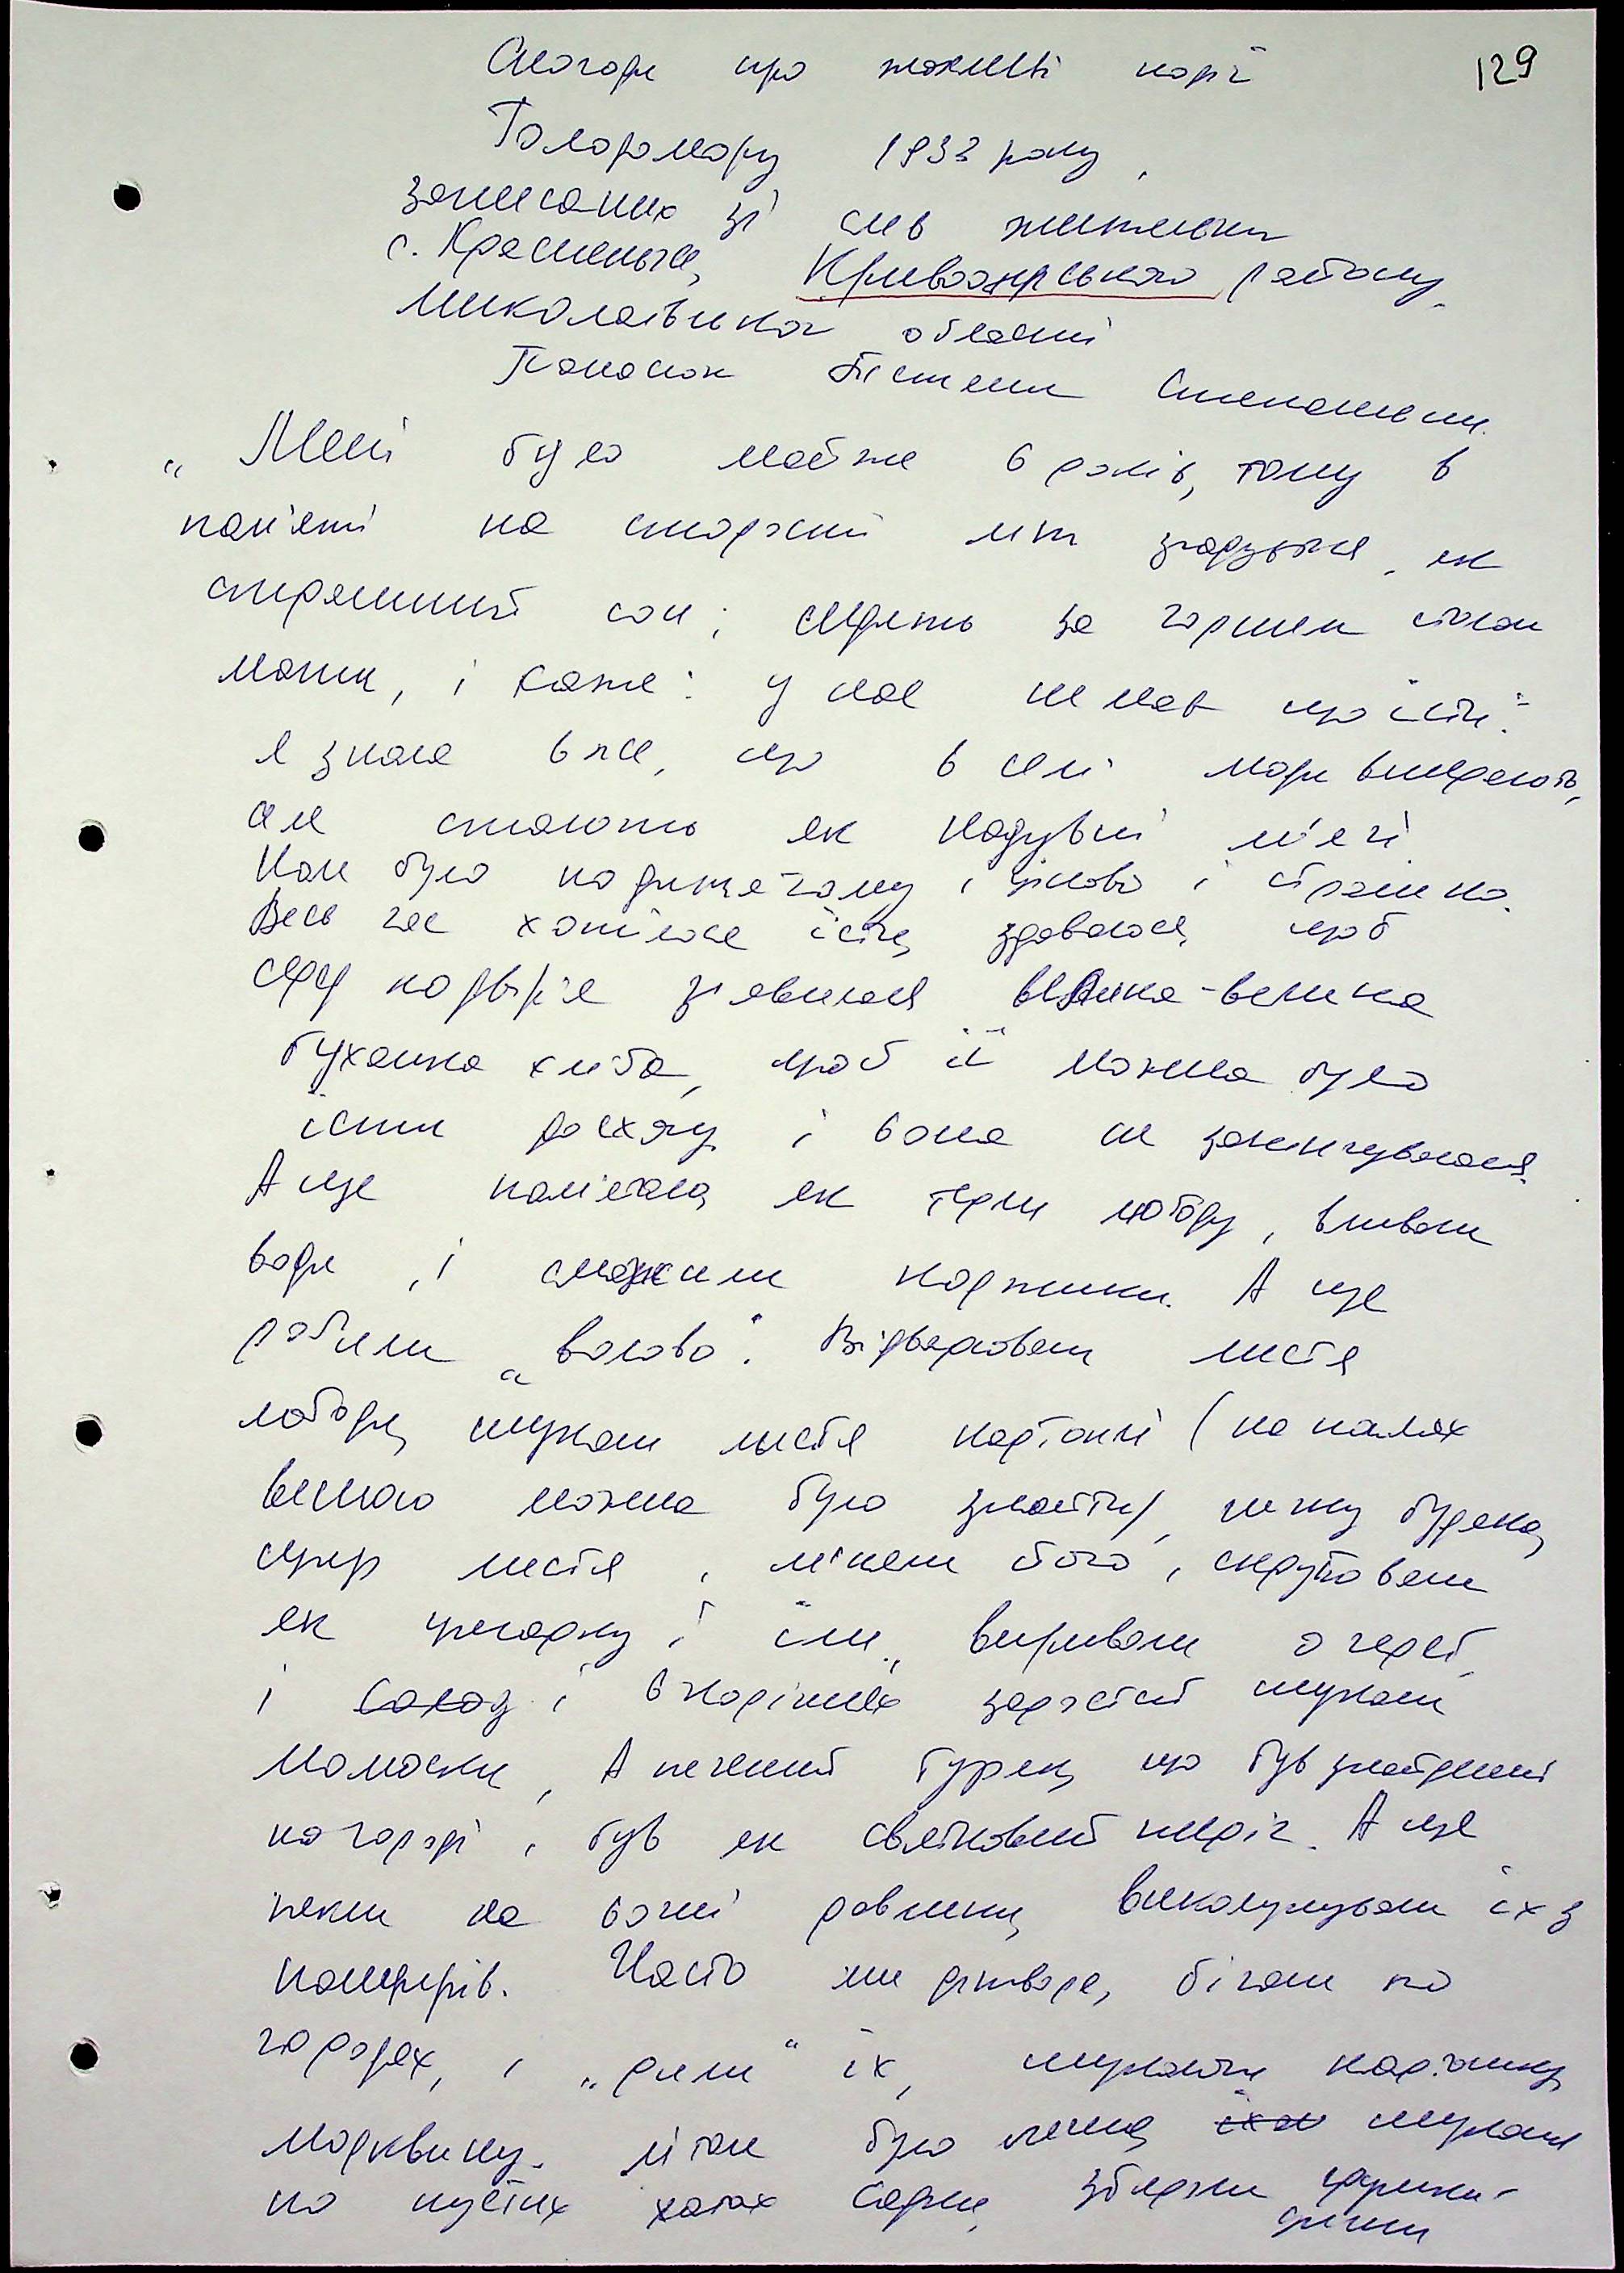 129
Спогади про жахливі події
Голодомору 1933 року,
записаних зі слів жительки
с. Красненьке, Кривоозерського району,
Миколаївської області
Панасюк Степанівни.
„Мені було майже 6 років, тому в
пам'яті на старості літ згадується, як
страшний сон; сидять за столом
мати, і каже: у нас нема що їсти."
Я знала вже, що в селі люди вмирають,
але стають як надувні м'ячі.
Нам було по дитячому і цікаво і страшно.
Весь час хотілося їсти, здавалося, щоб
серед подвір'я з'явилася велика-велика
буханка хліба, щоб її можна було
їсти досхочу і вона не закінчувалася.
А ще пам'ятаю, як терли лободу, вливали
води, і смажили коржики. А ще
робили „волово". Відварювали листя
лободи, шукали листя картоплі (на полях
весною можна було знайти), гичку буряка,
сушили листя, м'яли його, скручували
як цигарку і їли, виривали очерет,
і солод і в коріннях зарослей шукали
молюски. А печений буряк, що був знайдений
на городі, був як святковий пиріг. А ще
пекли на вогні равлики, виколупували їх з
панцирів. Часто ми дітвора, бігали по
городах, і „рили" їх, шукаючи картоплину,
морквину. літом було легше, шукали
по пустих хатах садки, збирали